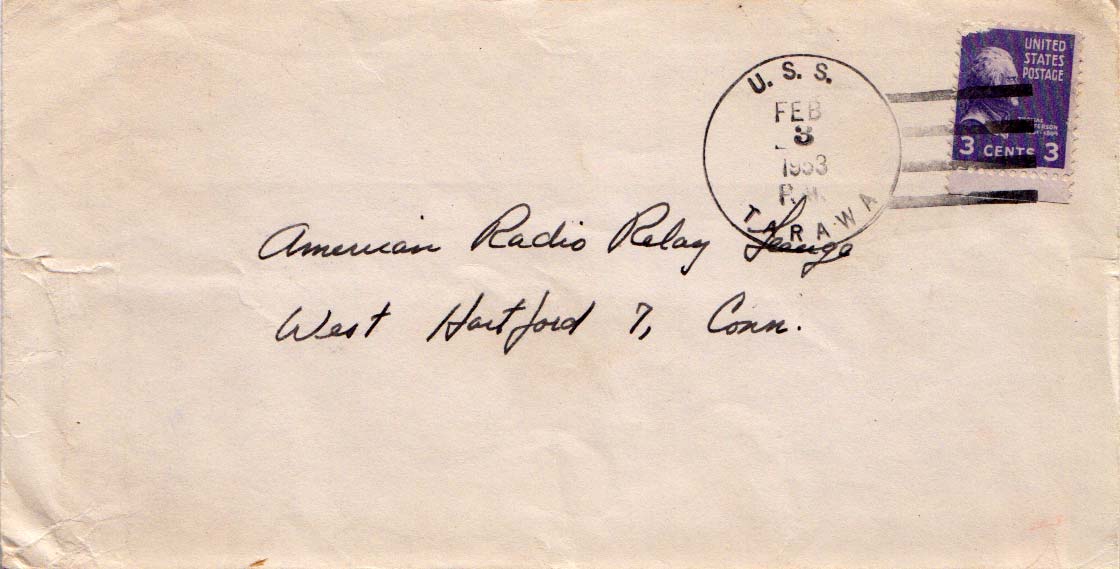 U. S. S.
FEB
3
1953
P.M.
TARAWA
UNITED
STATES
POSTAGE
3 CENTS 3
American Radio Relay League
West Hartford 7, Conn.